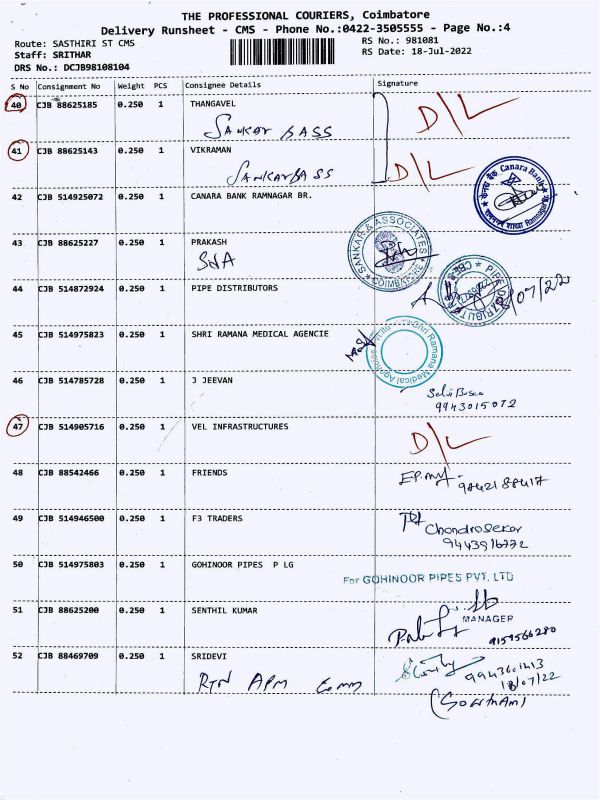 THE PROFESSIONAL COURIERS, Coimbatore
Delivery Runsheet - CMS - Phone No.:0422-3505555 - Page No.:4
Route: SASTHIRI ST CMS
Staff: SRITHAR
DRS No.: DCJB98108104
RS No.: 981081
RS Date: 18-Jul-2022
S No Consignment No Weight PCS Consignee Details Signature
40 CJB 88625185 0.250 1 THANGAVEL
SANKAR & ASS D/L
41 CJB 88625143 0.250 1 VIKRAMAN
SANKAR & ASS D/L
42 CJB 514925072 0.250 1 CANARA BANK RAMNAGAR BR.
केनरा बैंक Canara Bank
43 CJB 88625227 0.250 1 PRAKASH
S&A
SANKAR & ASSOCIATES
COIMBATORE
44 CJB 514872924 0.250 1 PIPE DISTRIBUTORS
PIPE DISTRIBUTORS
/07/22
45 CJB 514975823 0.250 1 SHRI RAMANA MEDICAL AGENCIE
Shri Ramana Medical Agencies
46 CJB 514785728 0.250 1 J JEEVAN
9943015072
47 CJB 514905716 0.250 1 VEL INFRASTRUCTURES
D/L
48 CJB 88542466 0.250 1 FRIENDS
9842188417
49 CJB 514946500 0.250 1 F3 TRADERS
Chandrasekar
9443916772
50 CJB 514975803 0.250 1 GOHINOOR PIPES P LG
For GOHINOOR PIPES PVT. LTD
MANAGER
51 CJB 88625200 0.250 1 SENTHIL KUMAR
9159566280
52 CJB 88469709 0.250 1 SRIDEVI
RTN APM Comm
9943601413
18/07/22
(GOWTHAM)